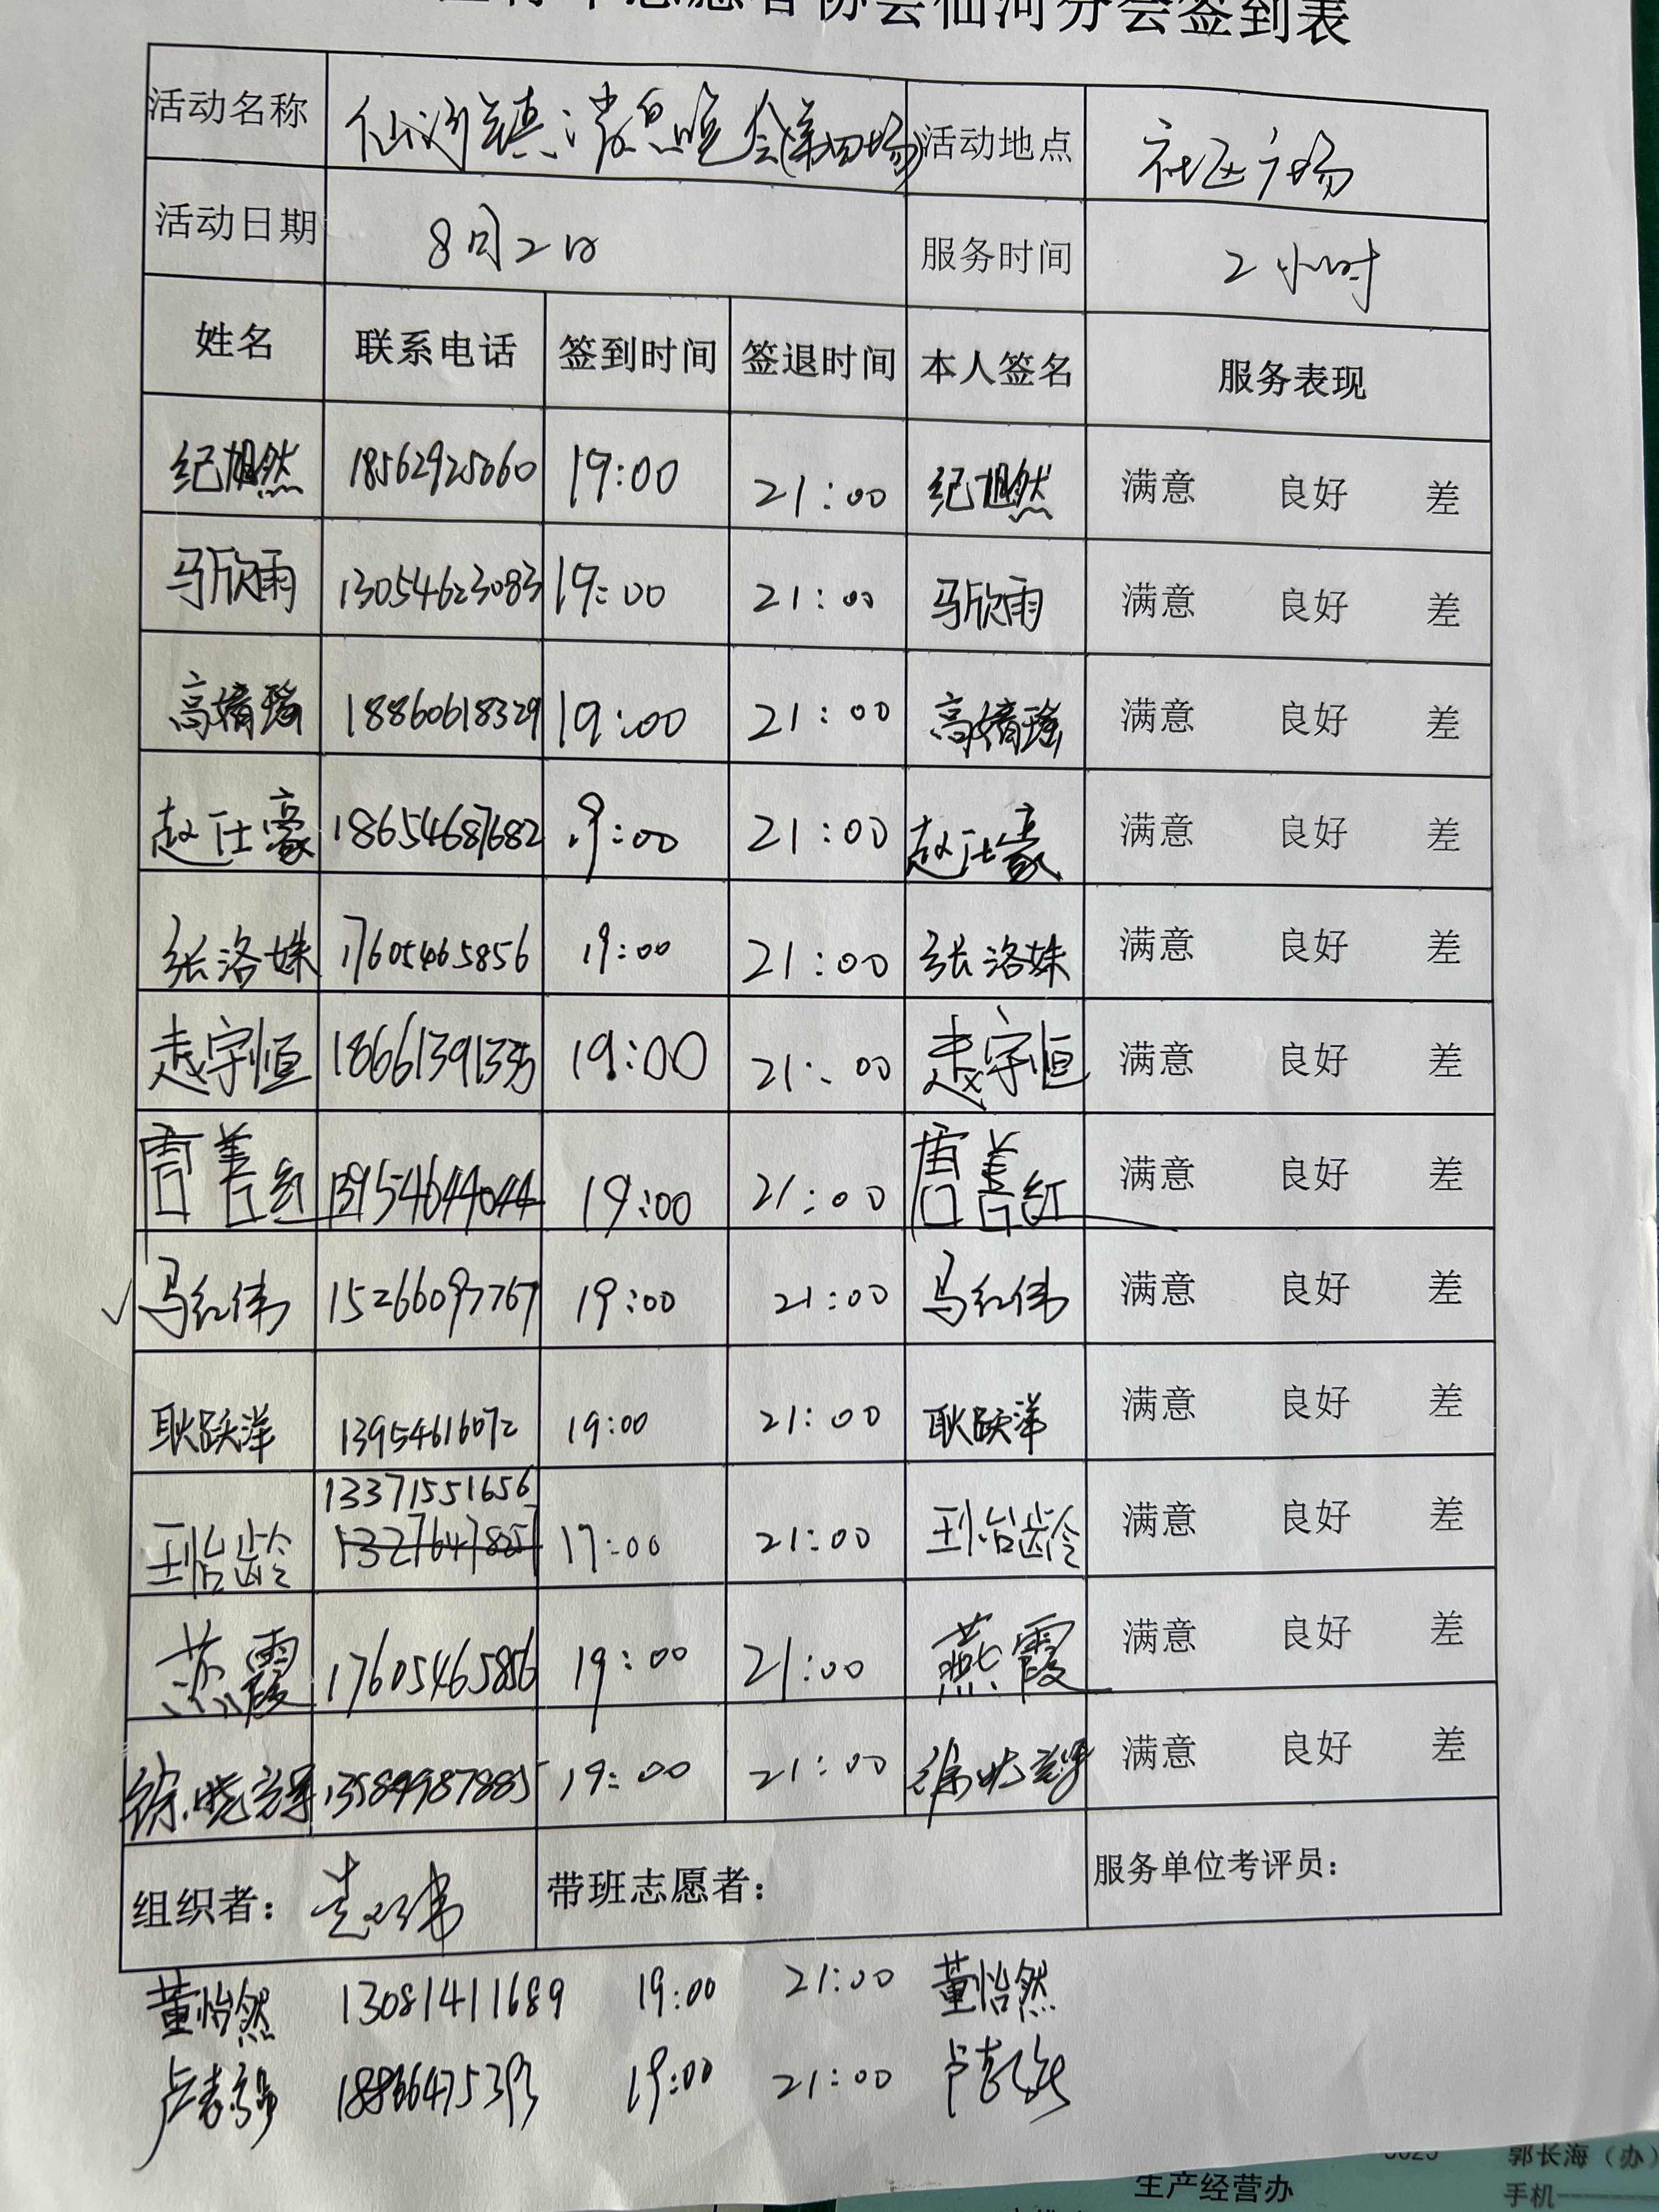 志愿者协会仙河分会签到表
活动名称 仙河镇消夏晚会(第四场) 活动地点 社区广场
活动日期 8月2日 服务时间 2小时
姓名 联系电话 签到时间 签退时间 本人签名 服务表现
纪旭然 18562925060 19:00 21:00 纪旭然 满意 良好 差
马欣雨 13054623083 19:00 21:00 马欣雨 满意 良好 差
高婧瑶 18860618329 19:00 21:00 高婧瑶 满意 良好 差
赵仕豪 18654687682 19:00 21:00 赵仕豪 满意 良好 差
张洛姝 17605465856 19:00 21:00 张洛姝 满意 良好 差
赵宇恒 19:00 21:00 赵宇恒 满意 良好 差
唐善红 13954644044 19:00 21:00 唐善红 满意 良好 差
马红伟 15266097767 19:00 21:00 马红伟 满意 良好 差
耿跃洋 13954616072 19:00 21:00 耿跃洋 满意 良好 差
13371551656
王怡龄 17:00 21:00 王怡龄 满意 良好 差
燕霞 17605465856 19:00 21:00 燕霞 满意 良好 差
徐晓 19:00 21:00 徐晓 满意 良好 差
组织者： 带班志愿者： 服务单位考评员：
董怡然 13081411689 19:00 21:00 董怡然
卢 19:00 21:00 卢
郭长海（办）
生产经营办 手机